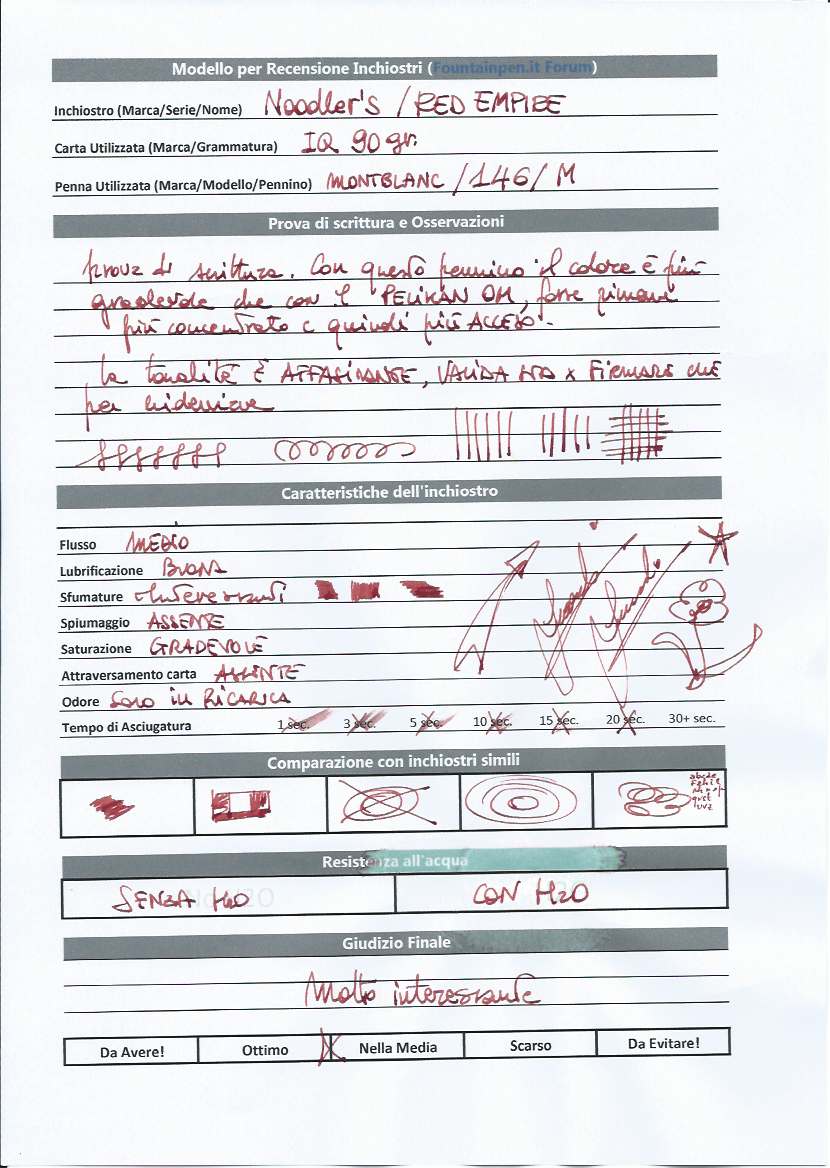 Modello per Recensione Inchiostri (Fountainpen.it Forum)
Inchiostro (Marca/Serie/Nome) Noodler's / RED EMPIRE
Carta Utilizzata (Marca/Grammatura) IQ 90 gr.
Penna Utilizzata (Marca/Modello/Pennino) MONTBLANC / 146 / M
Prova di scrittura e Osservazioni
prova di scrittura. Con questo pennino il colore è più
gradevole che con il PELIKAN OM, forse rimane
più concentrato e quindi più ACCESO.
la tonalità È AFFASCINANTE, VALIDA x FIRMARE CHE
per evidenziare
Caratteristiche dell'inchiostro
Flusso MEDIO
Lubrificazione BUONA
Sfumature interessanti
Spiumaggio ASSENTE
Saturazione GRADEVOLE
Attraversamento carta ASSENTE
Odore SOLO in RICARICA
Tempo di Asciugatura 1 sec. 3 sec. 5 sec. 10 sec. 15 sec. 20 sec. 30+ sec.
Comparazione con inchiostri simili
Resistenza all'acqua
SENZA H2O CON H2O
Giudizio Finale
Molto interessante
Da Avere! Ottimo Nella Media Scarso Da Evitare!